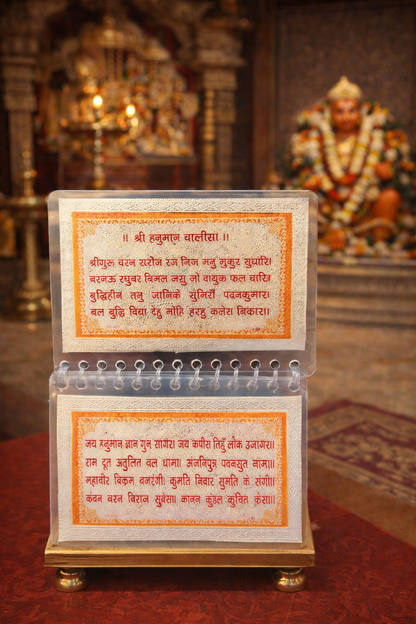 ॥ श्री हनुमान चालीसा ॥
श्रीगुरु चरन सरोज रज निज मनु मुकुर सुधारि।
बरनऊ रघुबर बिमल जसु जो दायकु फल चारि॥
बुद्धिहीन तनु जानिके सुमिरौं पवनकुमार।
बल बुद्धि विद्या देहु मोहि हरहु कलेश बिकार॥
जय हनुमान ज्ञान गुन सागर। जय कपीश तिहुँ लोक उजागर॥
राम दूत अतुलित बल धामा। अंजनिपुत्र पवनसुत नामा॥
महावीर बिक्रम बजरंगी। कुमति निवार सुमति के संगी॥
कंचन बरन बिराज सुबेसा। कानन कुंडल कुंचित केसा॥